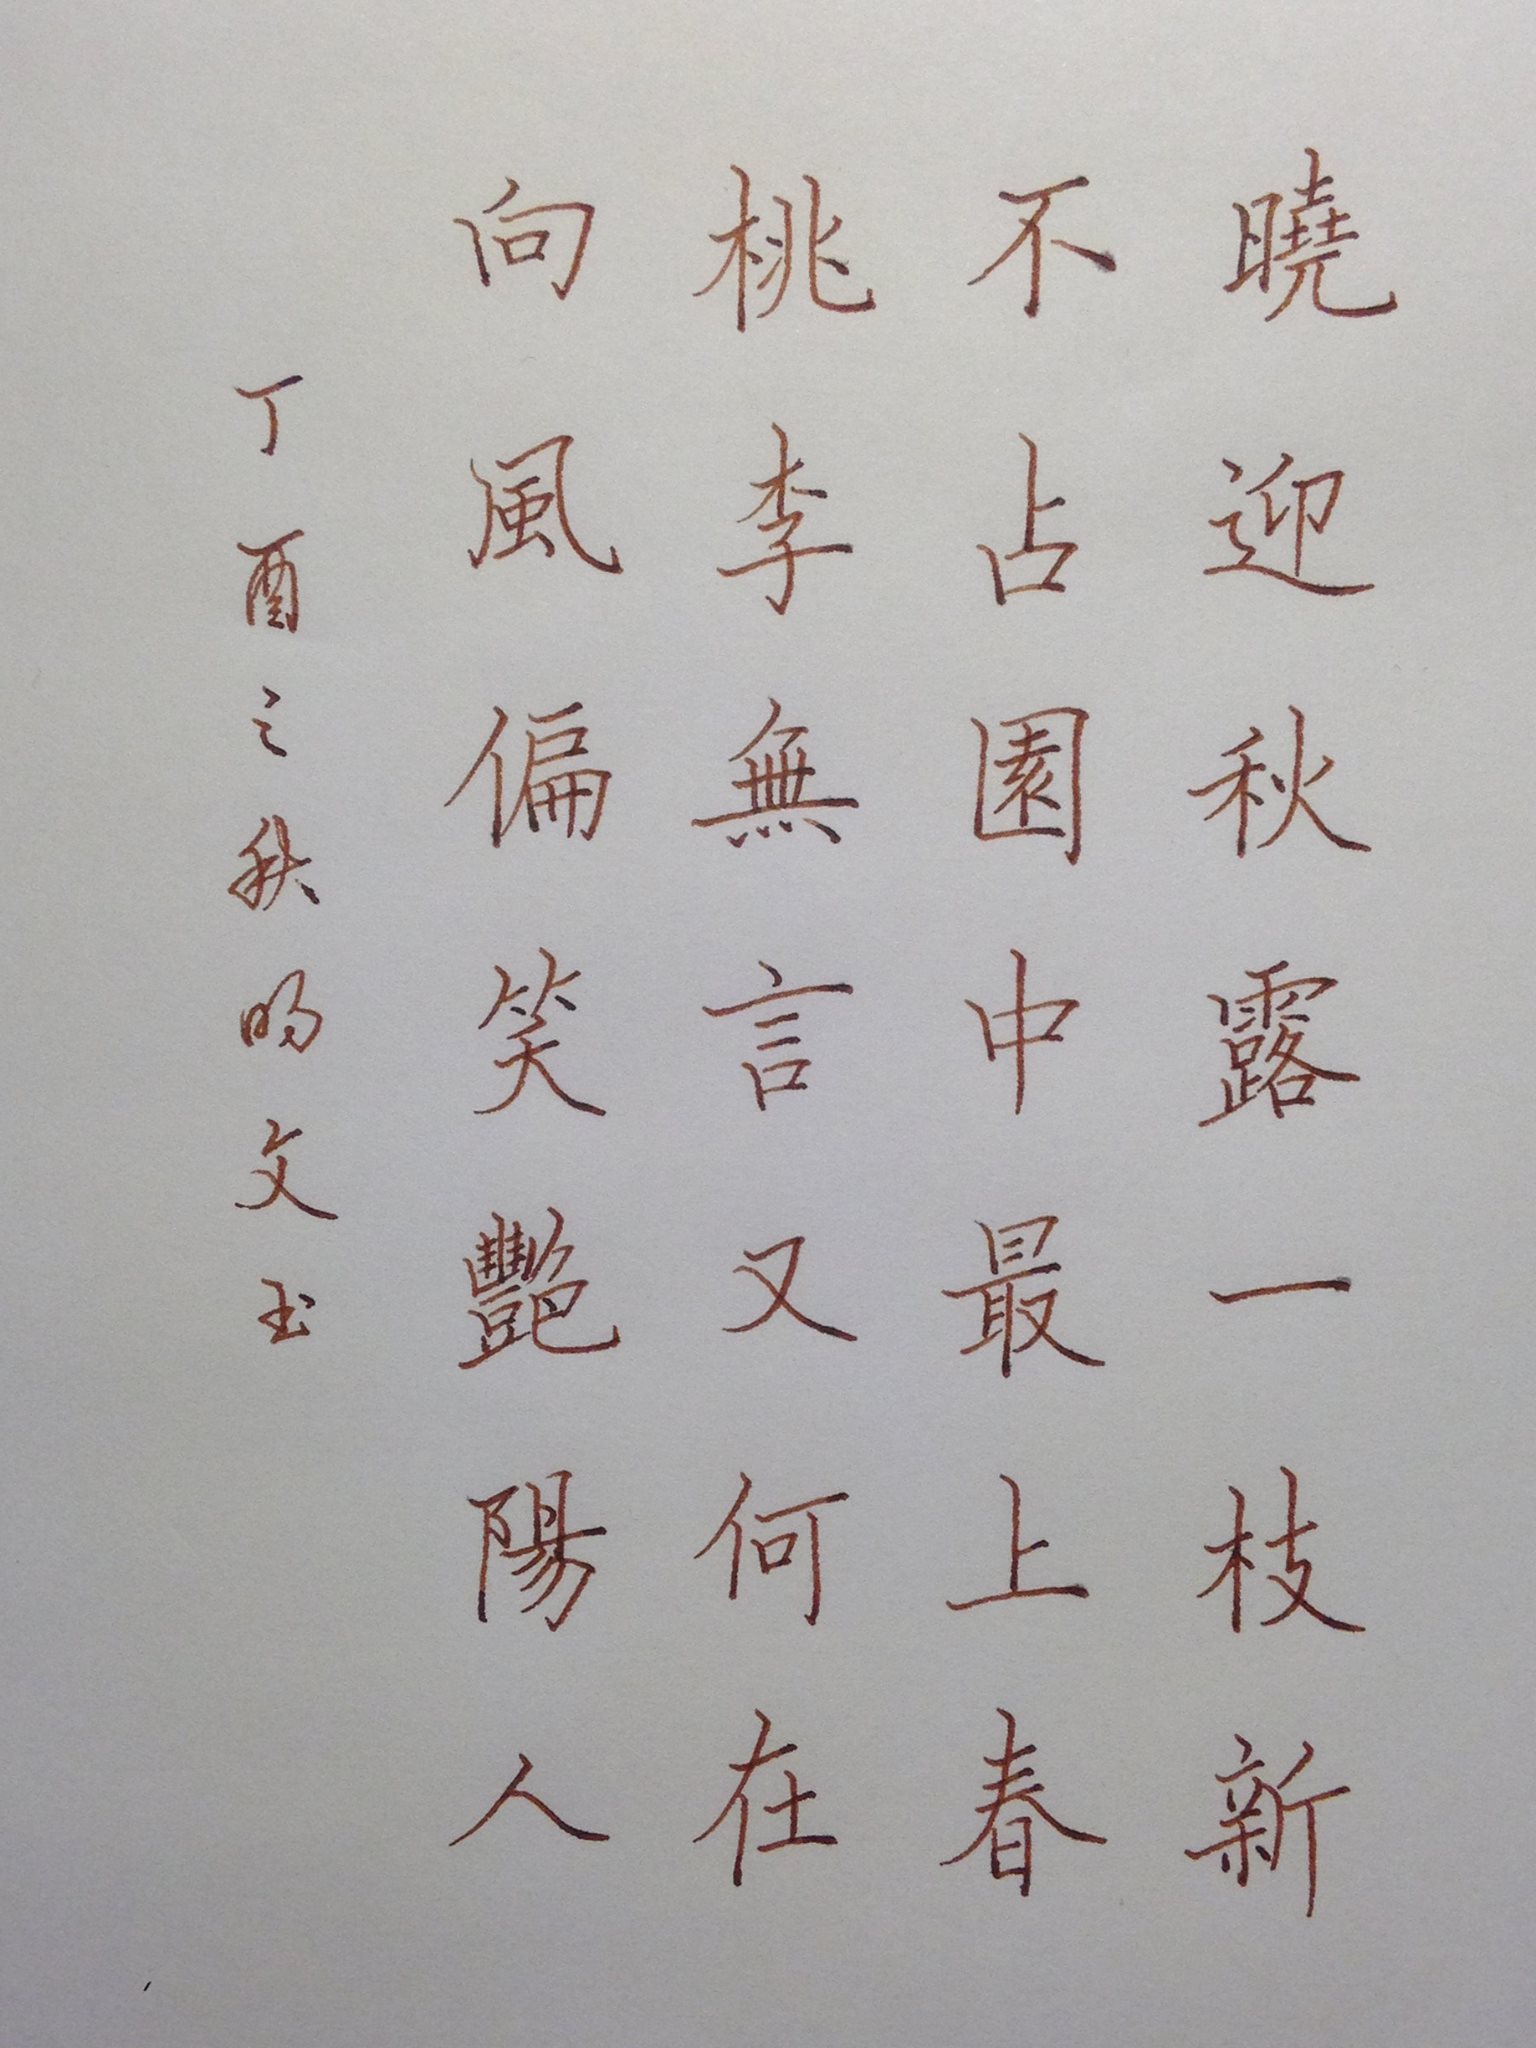 曉迎秋露一枝新
不占園中最上春
桃李無言又何在
向風偏笑艷陽人
丁酉之秋 文玉